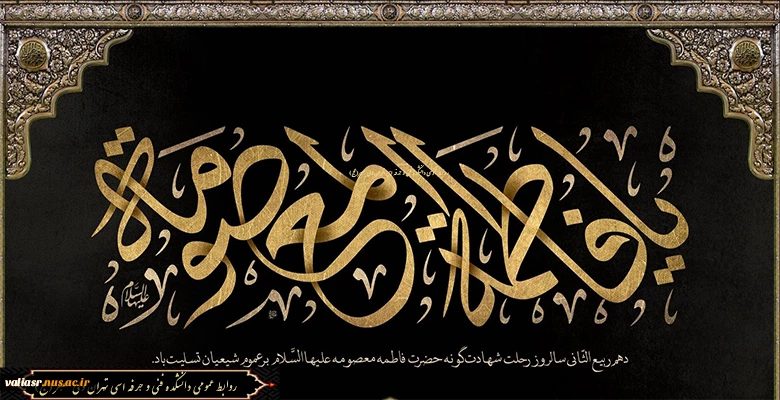 یا فاطمة المعصومة
علیهاالسلام
دهم ربیع الثانی سالروز رحلت شهادت‌گونه حضرت فاطمه معصومه علیهاالسَّلام بر عموم شیعیان تسلیت باد.
روابط عمومی دانشکده فنی و حرفه ای تهران
valiasr.nus.ac.ir